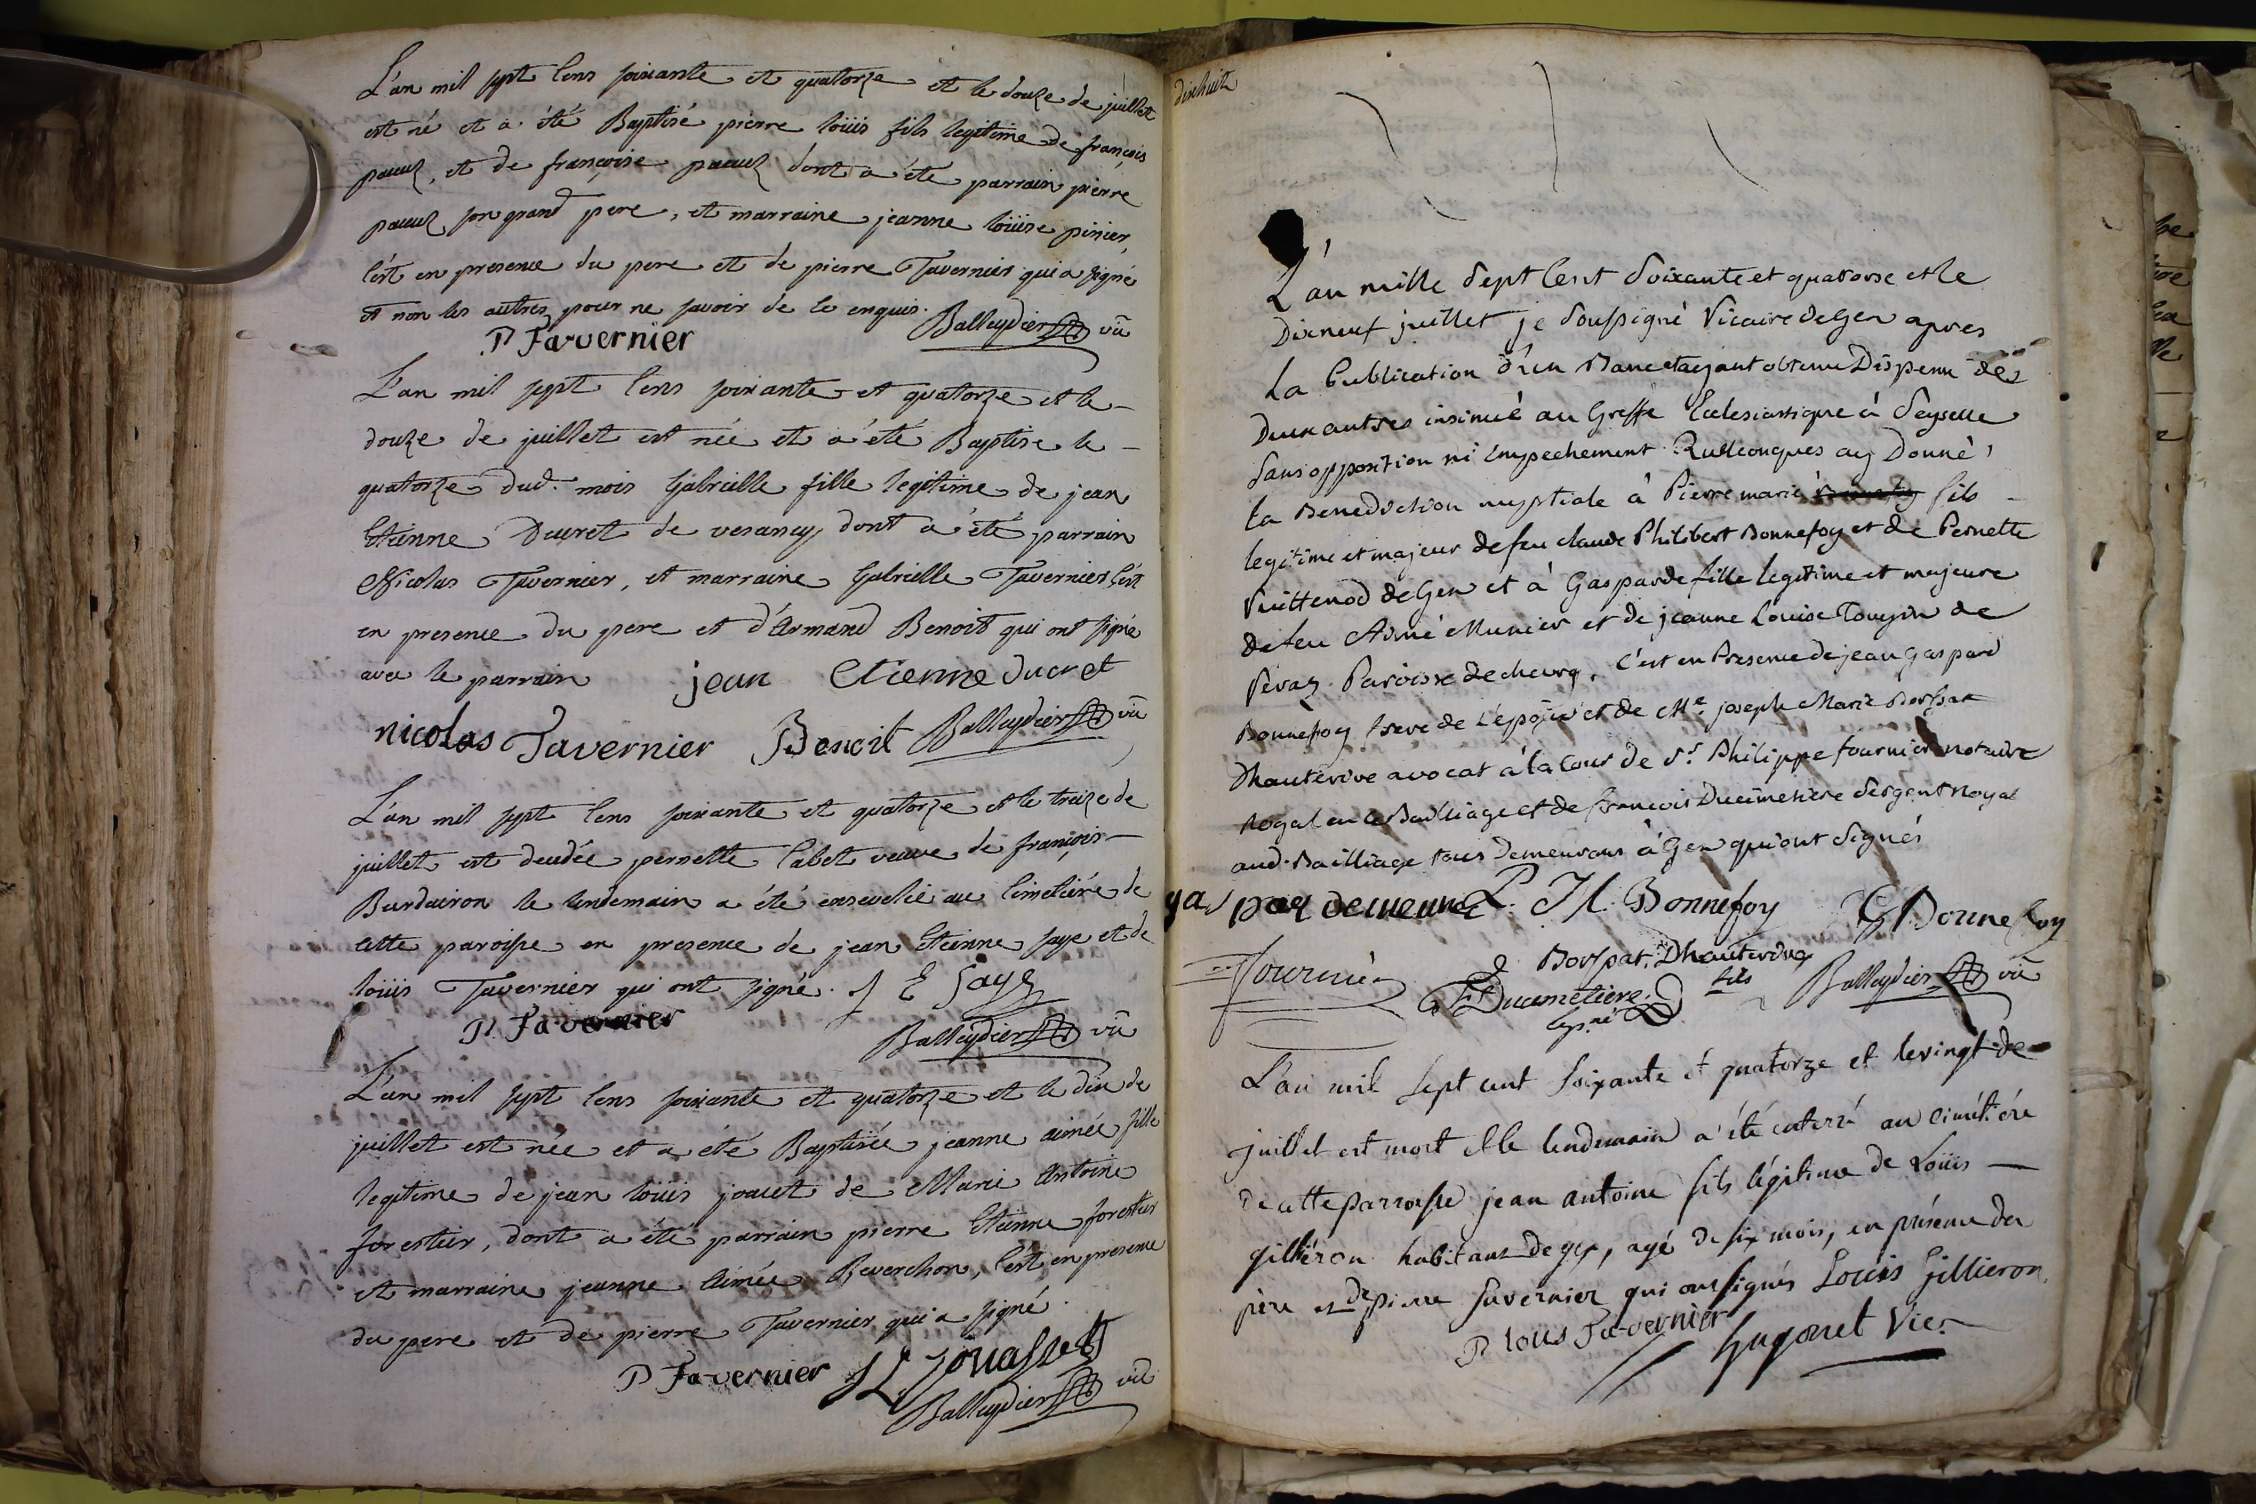 L'an mil sept cens soixante et quatorze et le douze de juillet
est né et a été Baptisé pierre loüis fils legitime de françois
et de françoise dont a été parrain pierre
son grand pere, et marraine jeanne loüise pinier,
c'est en presence du pere et de pierre Tavernier qui a signé
et non les autres pour ne savoir de ce enquis. Balleydier vic
P Tavernier
L'an mil sept cens soixante et quatorze et le
douze de juillet est née et a été Baptise le
quatorze dud. mois Gabrielle fille legitime de jean
Etienne Ducret de vesancy, dont a été parrain
Nicolas Tavernier, et marraine Gabrielle Tavernier, c'est
en presence du pere et d'Armand Benoit qui ont signé
avec le parrain jean Etienne ducret
nicolas Tavernier Benoit Balleydier vic
L'an mil sept cens soixante et quatorze et le treize de
juillet est decedée pernette Cabet veuve de françois
Burdairon le lendemain a été ensevelie au Cimetiére de
cette paroisse en presence de jean Etienne saye et de
loüis Tavernier qui ont signé. J E Saye
P. Tavernier
Balleydier vic
L'an mil sept cens soixante et quatorze et le dix de
juillet est née et a été Baptisée jeanne aimée fille
legitime de jean loüis de Marie Antoine
forestier, dont a été parrain pierre Etienne forestier
et marraine jeanne Aimée Reverchon, c'est en presence
du pere et de pierre Tavernier qui a signé.
P Tavernier JL Jouasset
Balleydier vic
dixhuit
L'an mille Sept Cent Soixante et quatorse et le
Dixneuf juillet je Soussigné Vicaire de Gex apres
La Publication d'un Banc et ayant obtenu Dispense des
Deux autres insinué au Greffe Ecclesiastique à Seysselle
Sans opposition ni Empechement Quelconques ay Donné
la Benediction nuptiale à Pierre marie fils
legitime et majeur de feu claude Philibert Bonnefoy et de Pernette
Vuittenod de Gex et à Gasparde fille legitime et majeure
de feu Aimé Munier et de jeanne Louise Tougin de
Peroisse de chevry, C'est en Presence de jean Gaspard
Bonnefoy frere de L'epoux et de Me. joseph Marie Borssat
Dhauterive avocat à la Cour de Sr. Philippe fournier notaire
Royal au Bailliage et de francois Ducimetiere Sergent Royal
aud. Bailliage tous Demeurans à Gex qui ont Signés
gaspardemeunié P. M. Bonnefoy G Bonnefoy
Fournier Borssat. Dhauterive fils Balleydier vic
F Ducimetiere
L'an mil Sept cent Soixante et quatorze et le vingt de
juillet est mort et le lendemain a été enterré au cimétiére
de cette parroisse jean antoine fils légitime de Loüis
Gilliéron habitant de gex, agé de six mois, en présence du
père et de pierre Tavernier qui ont signés Loüis Gillieron
P loüs Tavernier Hugonet Vic.